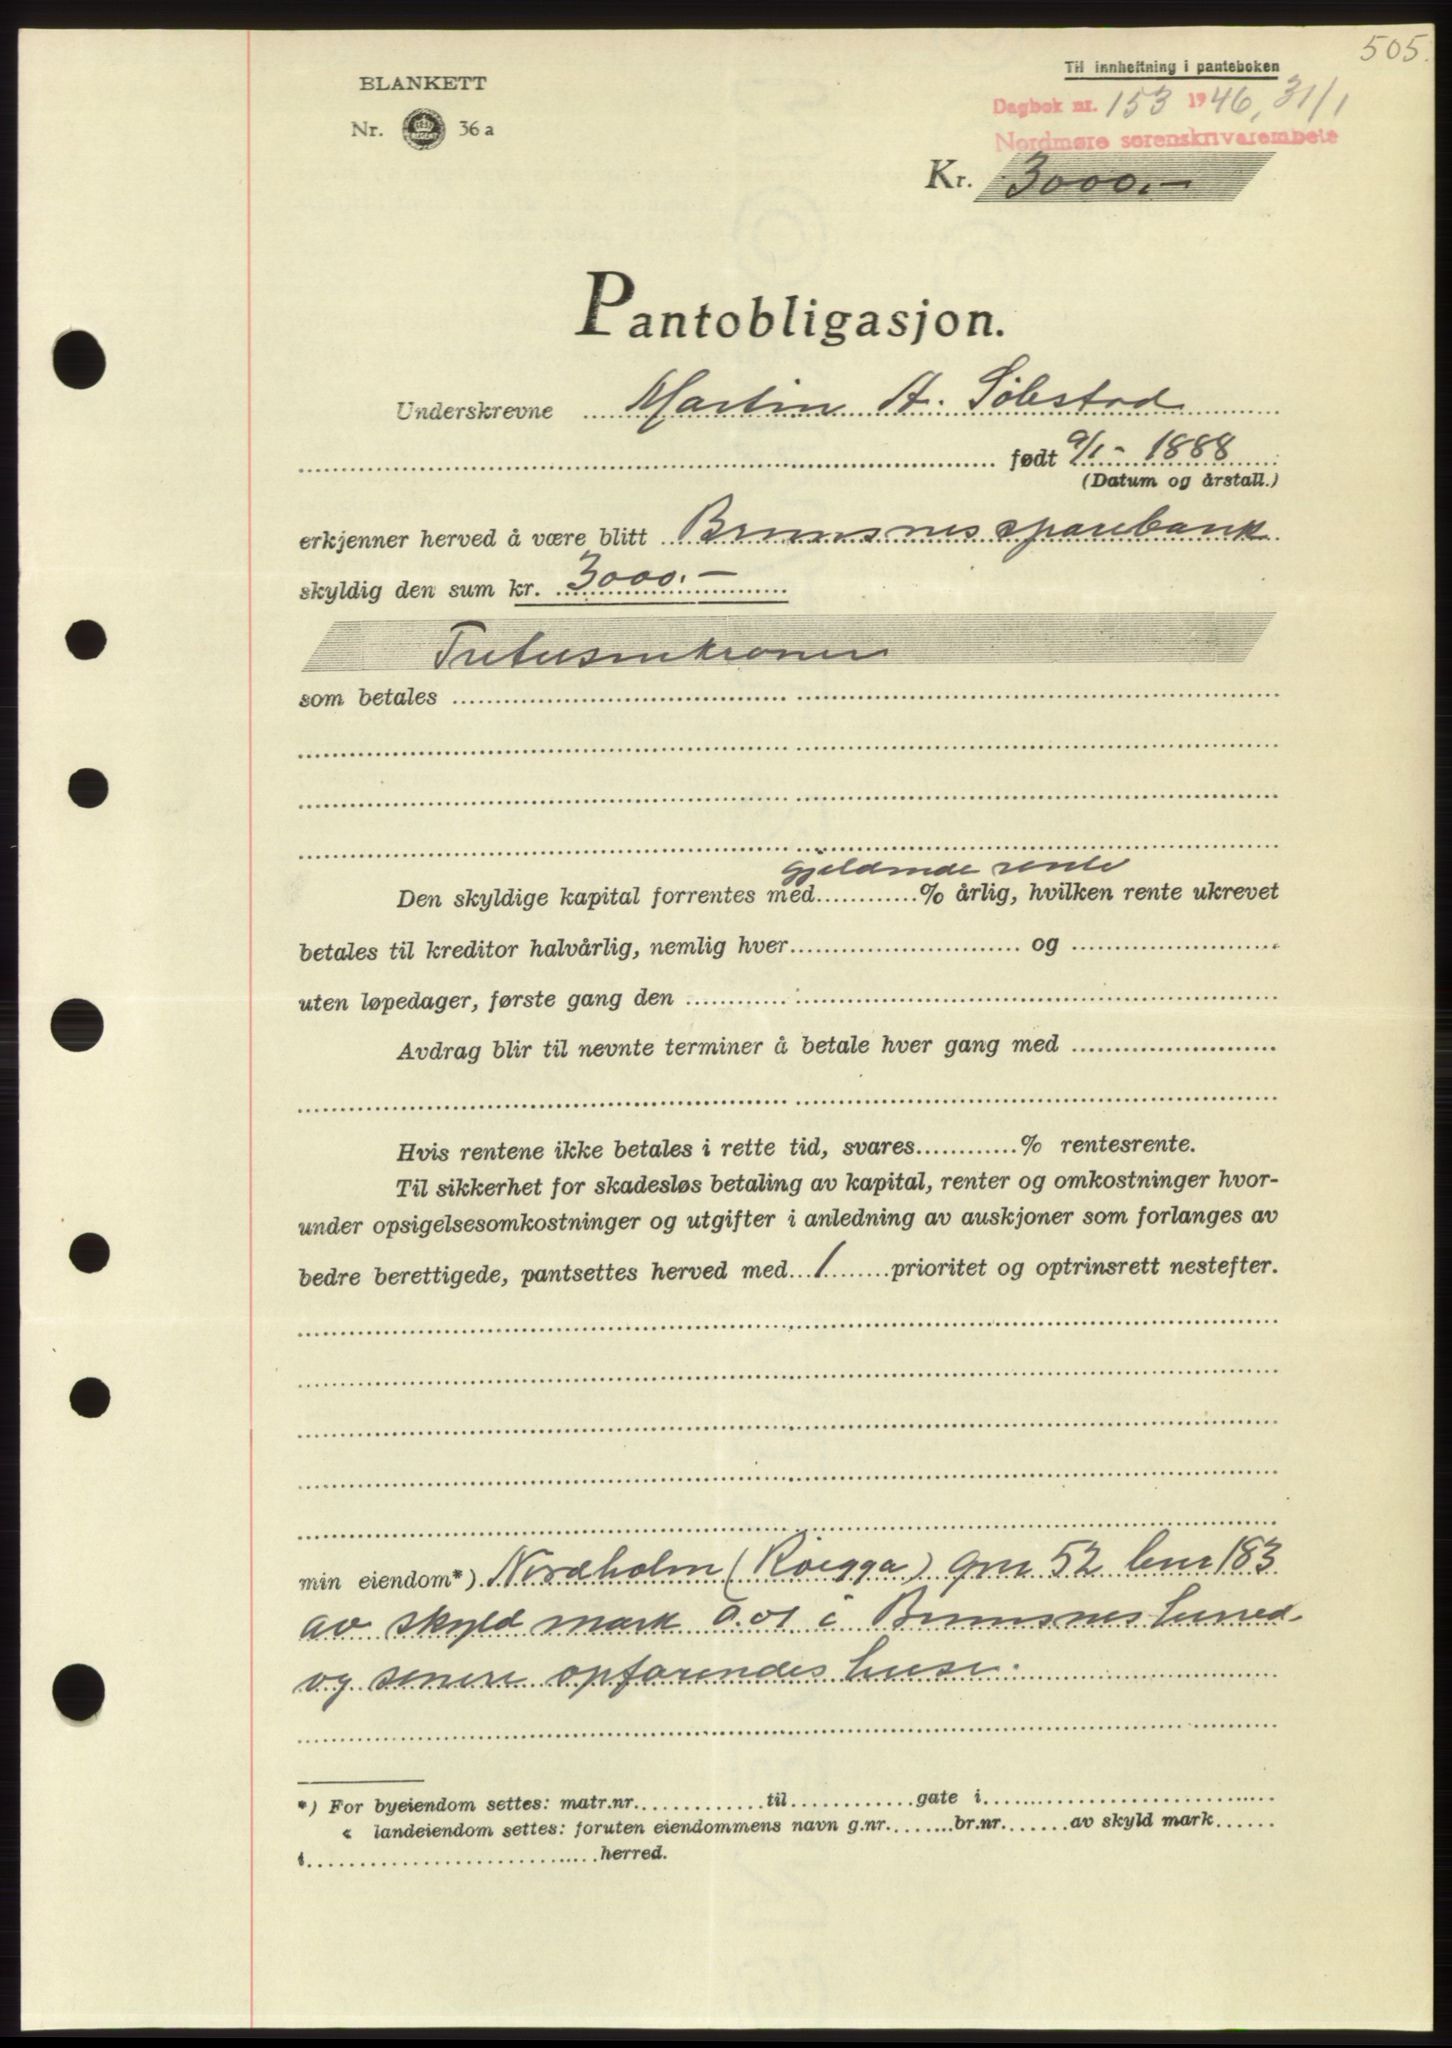 505.
BLANKETT
Nr. 36 a
Til innheftning i panteboken
Dagbok nr. 153 1946, 31/1
Nordmøre sorenskrivarembete
Kr. 3000.-
Pantobligasjon.
Underskrevne Martin A. Sølestad
født 9/1 - 1888
(Datum og årstall.)
erkjenner herved å være blitt Bremsnes sparebank
skyldig den sum kr. 3000.-
Tretusenkroner
som betales
gjeldende rente
Den skyldige kapital forrentes med % årlig, hvilken rente ukrevet
betales til kreditor halvårlig, nemlig hver og
uten løpedager, første gang den
Avdrag blir til nevnte terminer å betale hver gang med
Hvis rentene ikke betales i rette tid, svares % rentesrente.
Til sikkerhet for skadesløs betaling av kapital, renter og omkostninger hvor-
under opsigelsesomkostninger og utgifter i anledning av auskjoner som forlanges av
bedre berettigede, pantsettes herved med 1 prioritet og optrinsrett nestefter.
min eiendom*) Nordholm ( ) gnr 52 bnr 183
av skyld mark 0.01 i Bremsnes herred
og senere opførendes huse.
*) For byeiendom settes: matr.nr. til gate i
« landeiendom settes: foruten eiendommens navn g.nr. br.nr. av skyld mark
i herred.